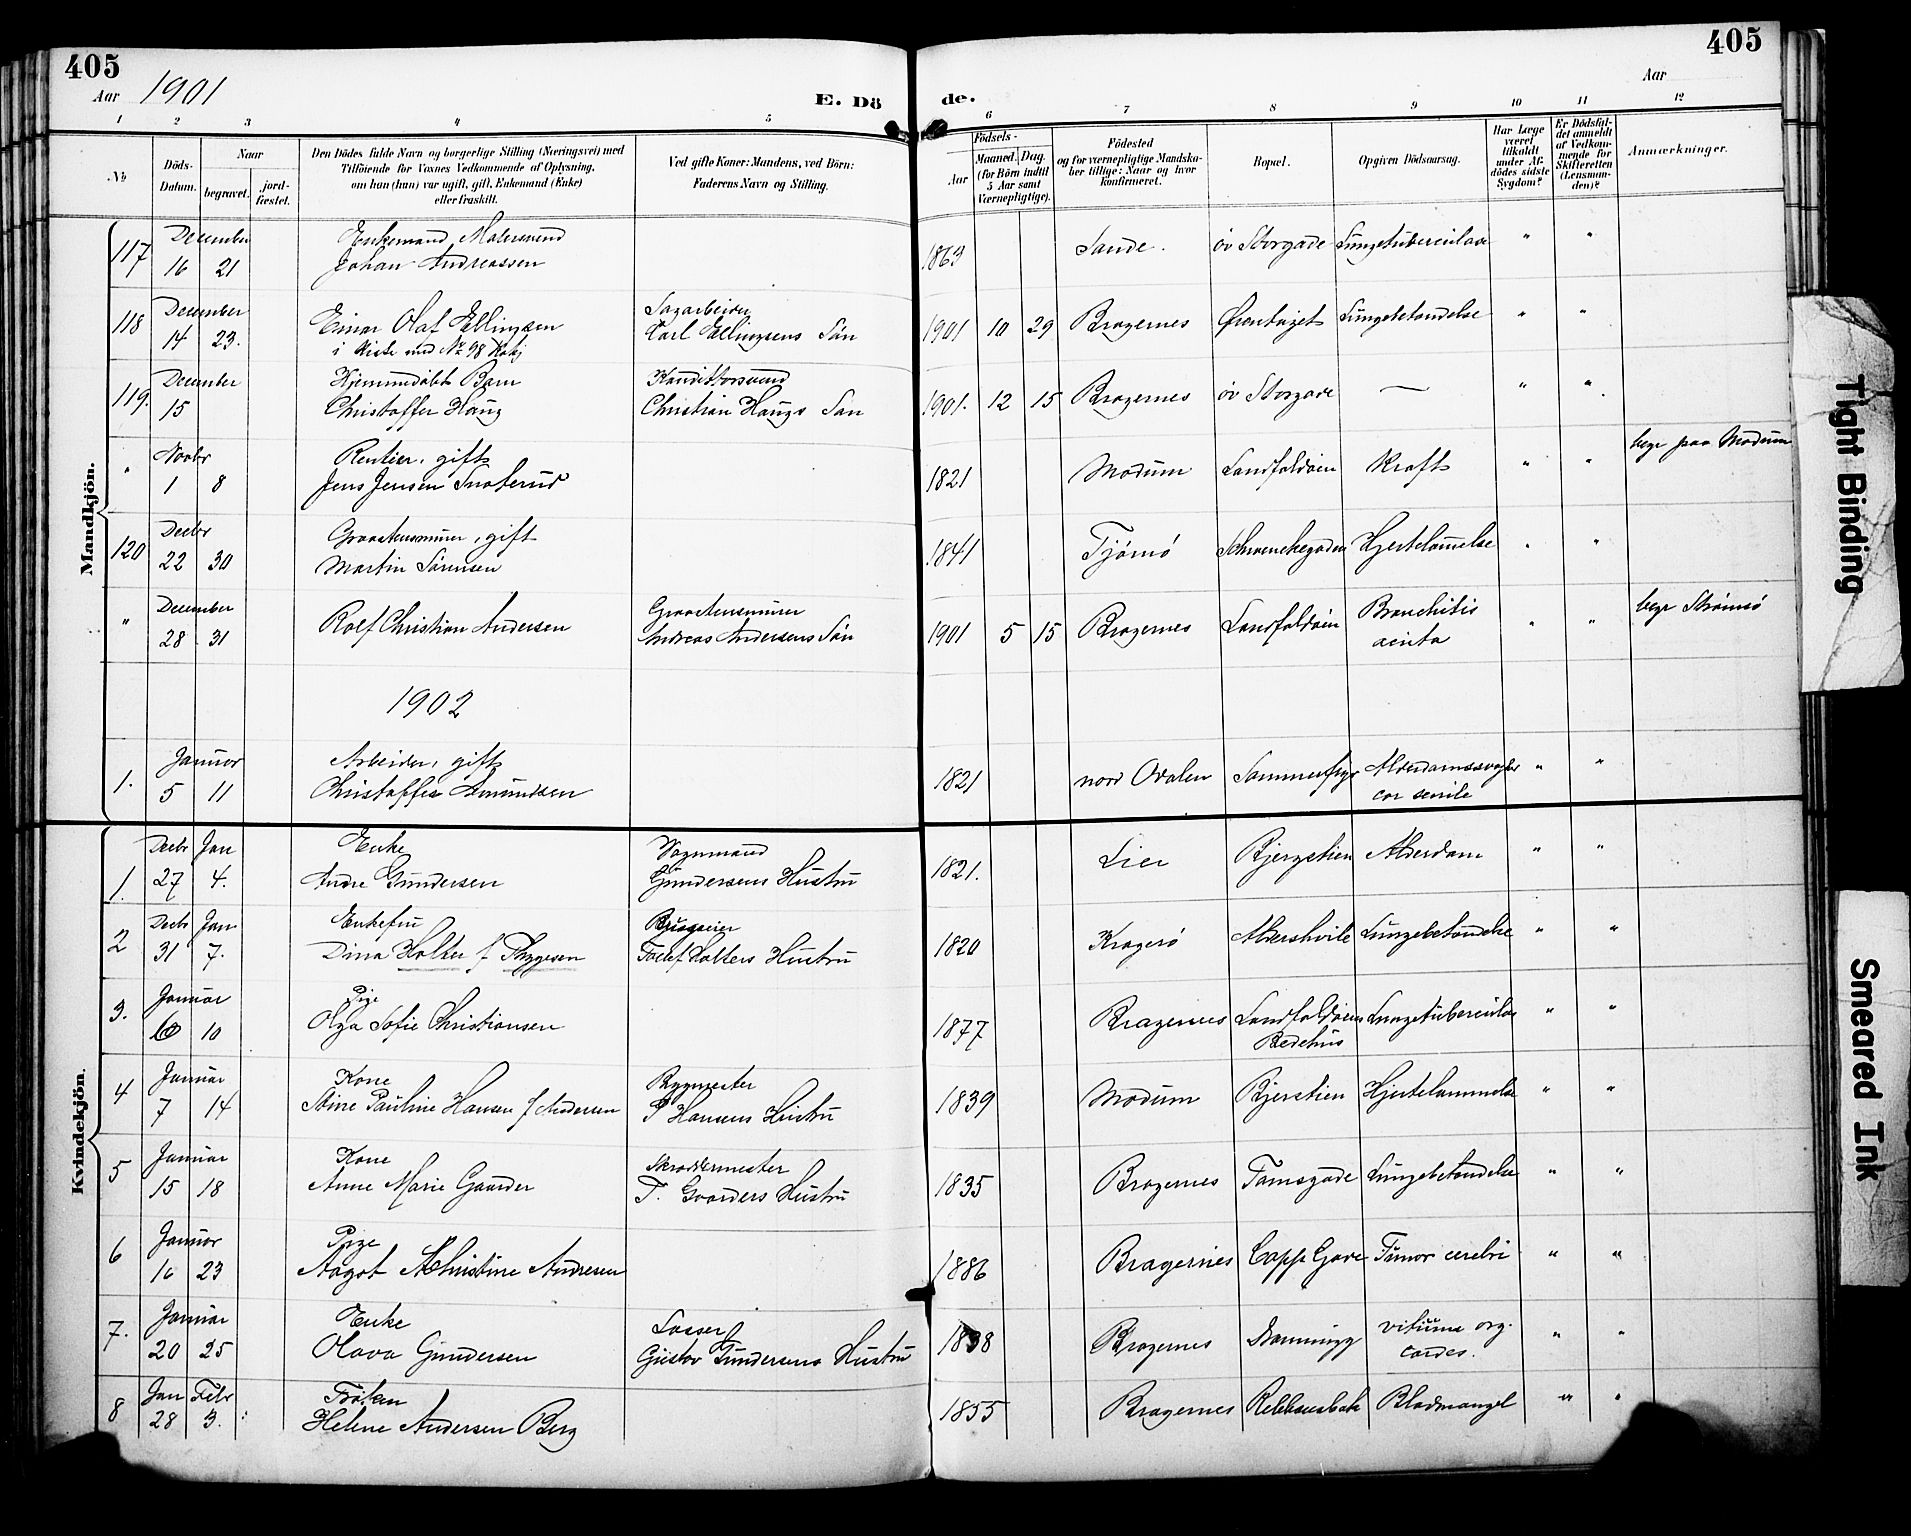 405
405
Aar 1901
E. Dö
de.
Aar
1 2 3 4 5 6 7 8 9 10 11 12
No
Döds-Datum.
Naar
begravet.
jord-fæstet.
Den Dödes fulde Navn og borgerlige Stilling (Næringsvei) med
Tilföiende for Voxnes Vedkommende af Oplysning,
om han (hun) var ugift, gift, Enkemand (Enke)
eller fraskilt.
Ved gifte Koner: Mandens, ved Börn:
Faderens Navn og Stilling.
Födsels-
Aar
Maaned. Dag.
(for Börn indtil
5 Aar samt
Værnepligtige).
Födested
og for værnepligtige Mandska-
ber tillige: Naar og hvor
konfirmeret.
Bopæl.
Opgiven Dödsaarsag.
Har Læge
været
tilkaldt
under Af-
dödes sidste
Sygdom?
Er Dödsfal-
det anmeldt
af Vedkom-
mende for
Skifteretten
(Lensman-
den)?
Anmærkninger.
Mandkjön.
December Enkemand
117 16 21 Johan Andreassen 1863 Sande. öv Storgade Lungetuberculose " "
December Sagarbeider
118 14 23. Einar Olaf Ellingsen Carl Ellingsens Sön 1901 10 29 Bragernes Lungebetændelse " "
i Kiste med No 98
December Hjemmedøbt Barn
119. 15 Christoffer Haug Christian Haugs Sön 1901. 12 15 Bragernes öv Storgade — " "
Novbr Rentier, gift begr paa Modum
" 1 8 Jens Jensen Snoterud 1821 Modum Landfaldöen Kræft " "
Decbr gift
120 22 30 Martin Sörensen 1841 Tjömö Hjertelammelse " "
December begr Strömsö
" 28 31 Rolf Christian Andersen Andreas Andersens Sön 1901 5 15 Bragernes Landfaldöen Bronchitis acuta " "
1902
Januar Arbeider, gift
1. 5 11 Christoffer Amundsen 1821 nord Odalen Alderdomssvaghed " "
cor senile
Kvindekjön.
Decbr Jan Enke Vognmand
1. 27 4. Andre Gundersen Gundersens Hustru 1821. Lier Bjergstien Alderdom " "
Decbr Jan Enkefru
2 31 7. Dina Holter f Thygesen Holters Hustru 1820 Kragerö Aldershvile Lungebetændelse " "
Januar Pige
3. 6 10 Olga Sofie Christiansen 1877 Bragernes Landfaldöens Lungetuberculose " "
Bedehus
Januar Kone Bygmester
4 7 14 Stine Pauline Hansen f Andersen P Hansens Hustru 1839 Modum Bjerstien Hjertelammelse " "
Januar Kone Skræddermester
5 15 18 Anne Marie Gaarder T. Gaarders Hustru 1835 Bragernes Tomsgade Lungebetændelse " "
Januar Pige
6 16 23 Aagot Christine Andresen 1886 Bragernes Capp Gade Tumor cerebri " "
Januar Enke Losser
7. 20 25 Olava Gundersen Gustav Gundersens Hustru 1838 Bragernes vitium org. " "
cordis.
Jan Febr Fröken
8 28 3. Helene Andersen Berg 1855 Bragernes Rebbansbak Blodmangel " "
Tight Binding
Smeared Ink